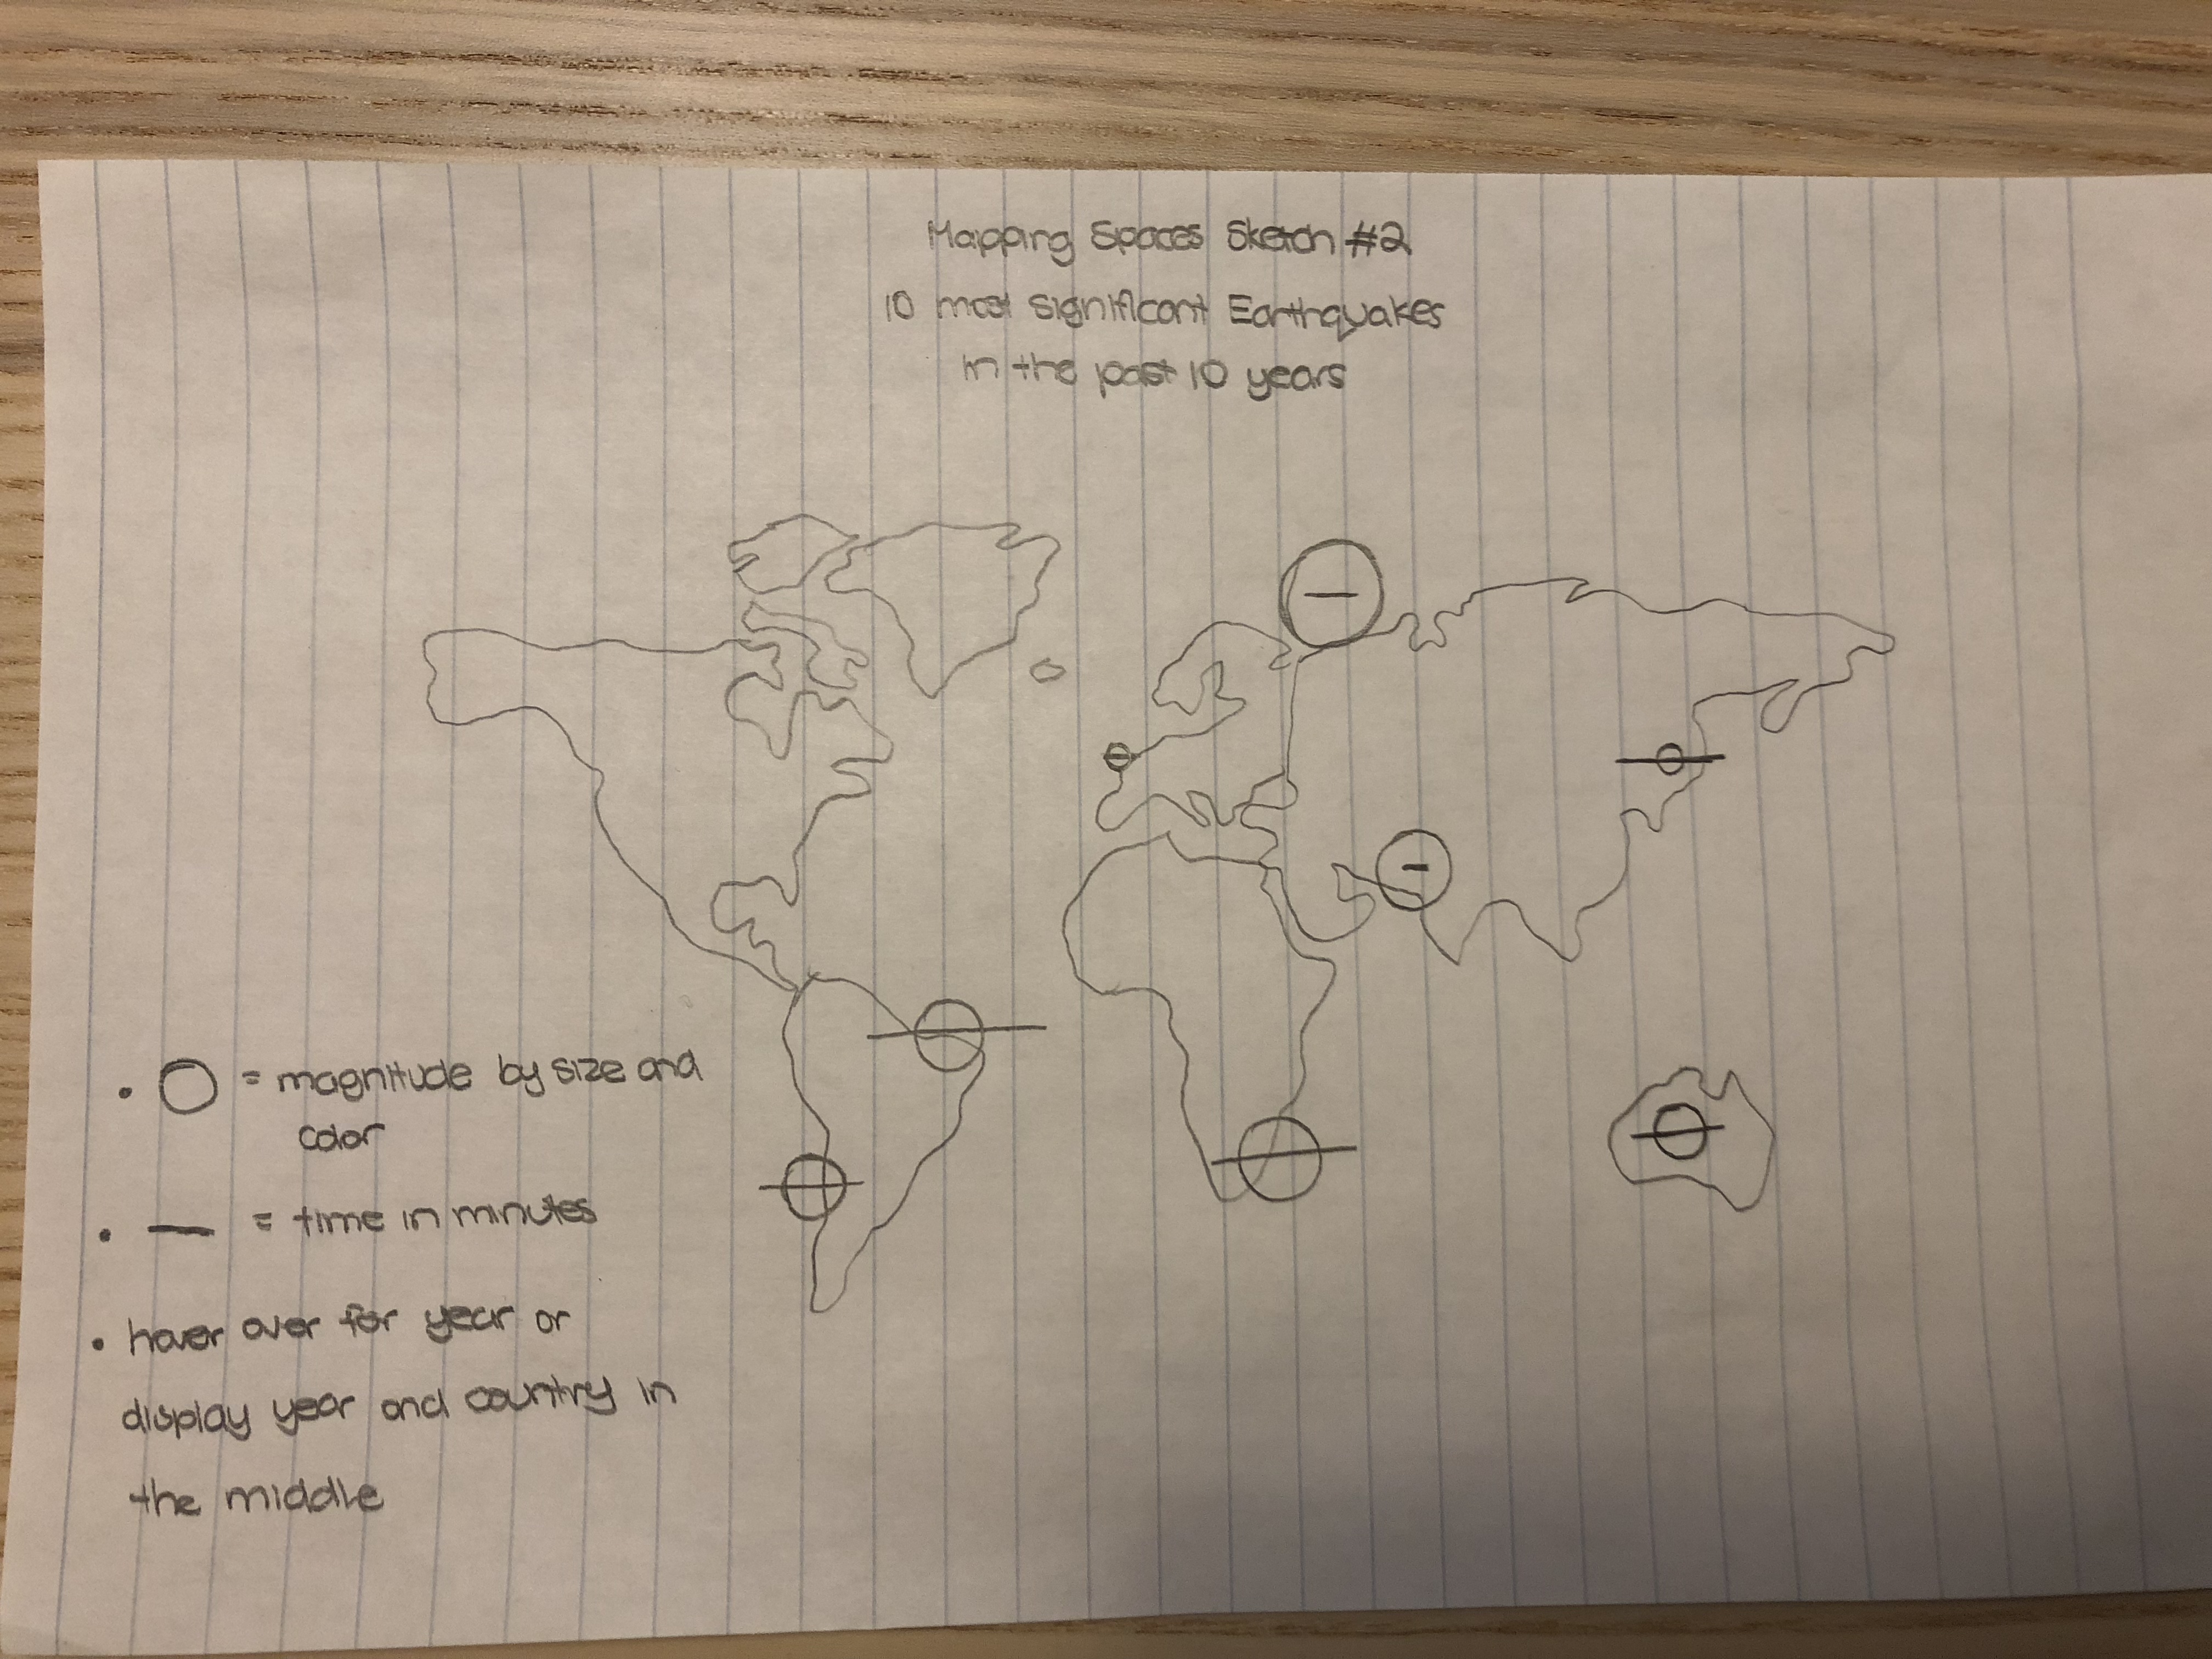 Mapping Spaces Sketch #2
10 most significant Earthquakes
in the past 10 years
• O = magnitude by size and
color
• — = time in minutes
• hover over for year or
display year and country in
the middle